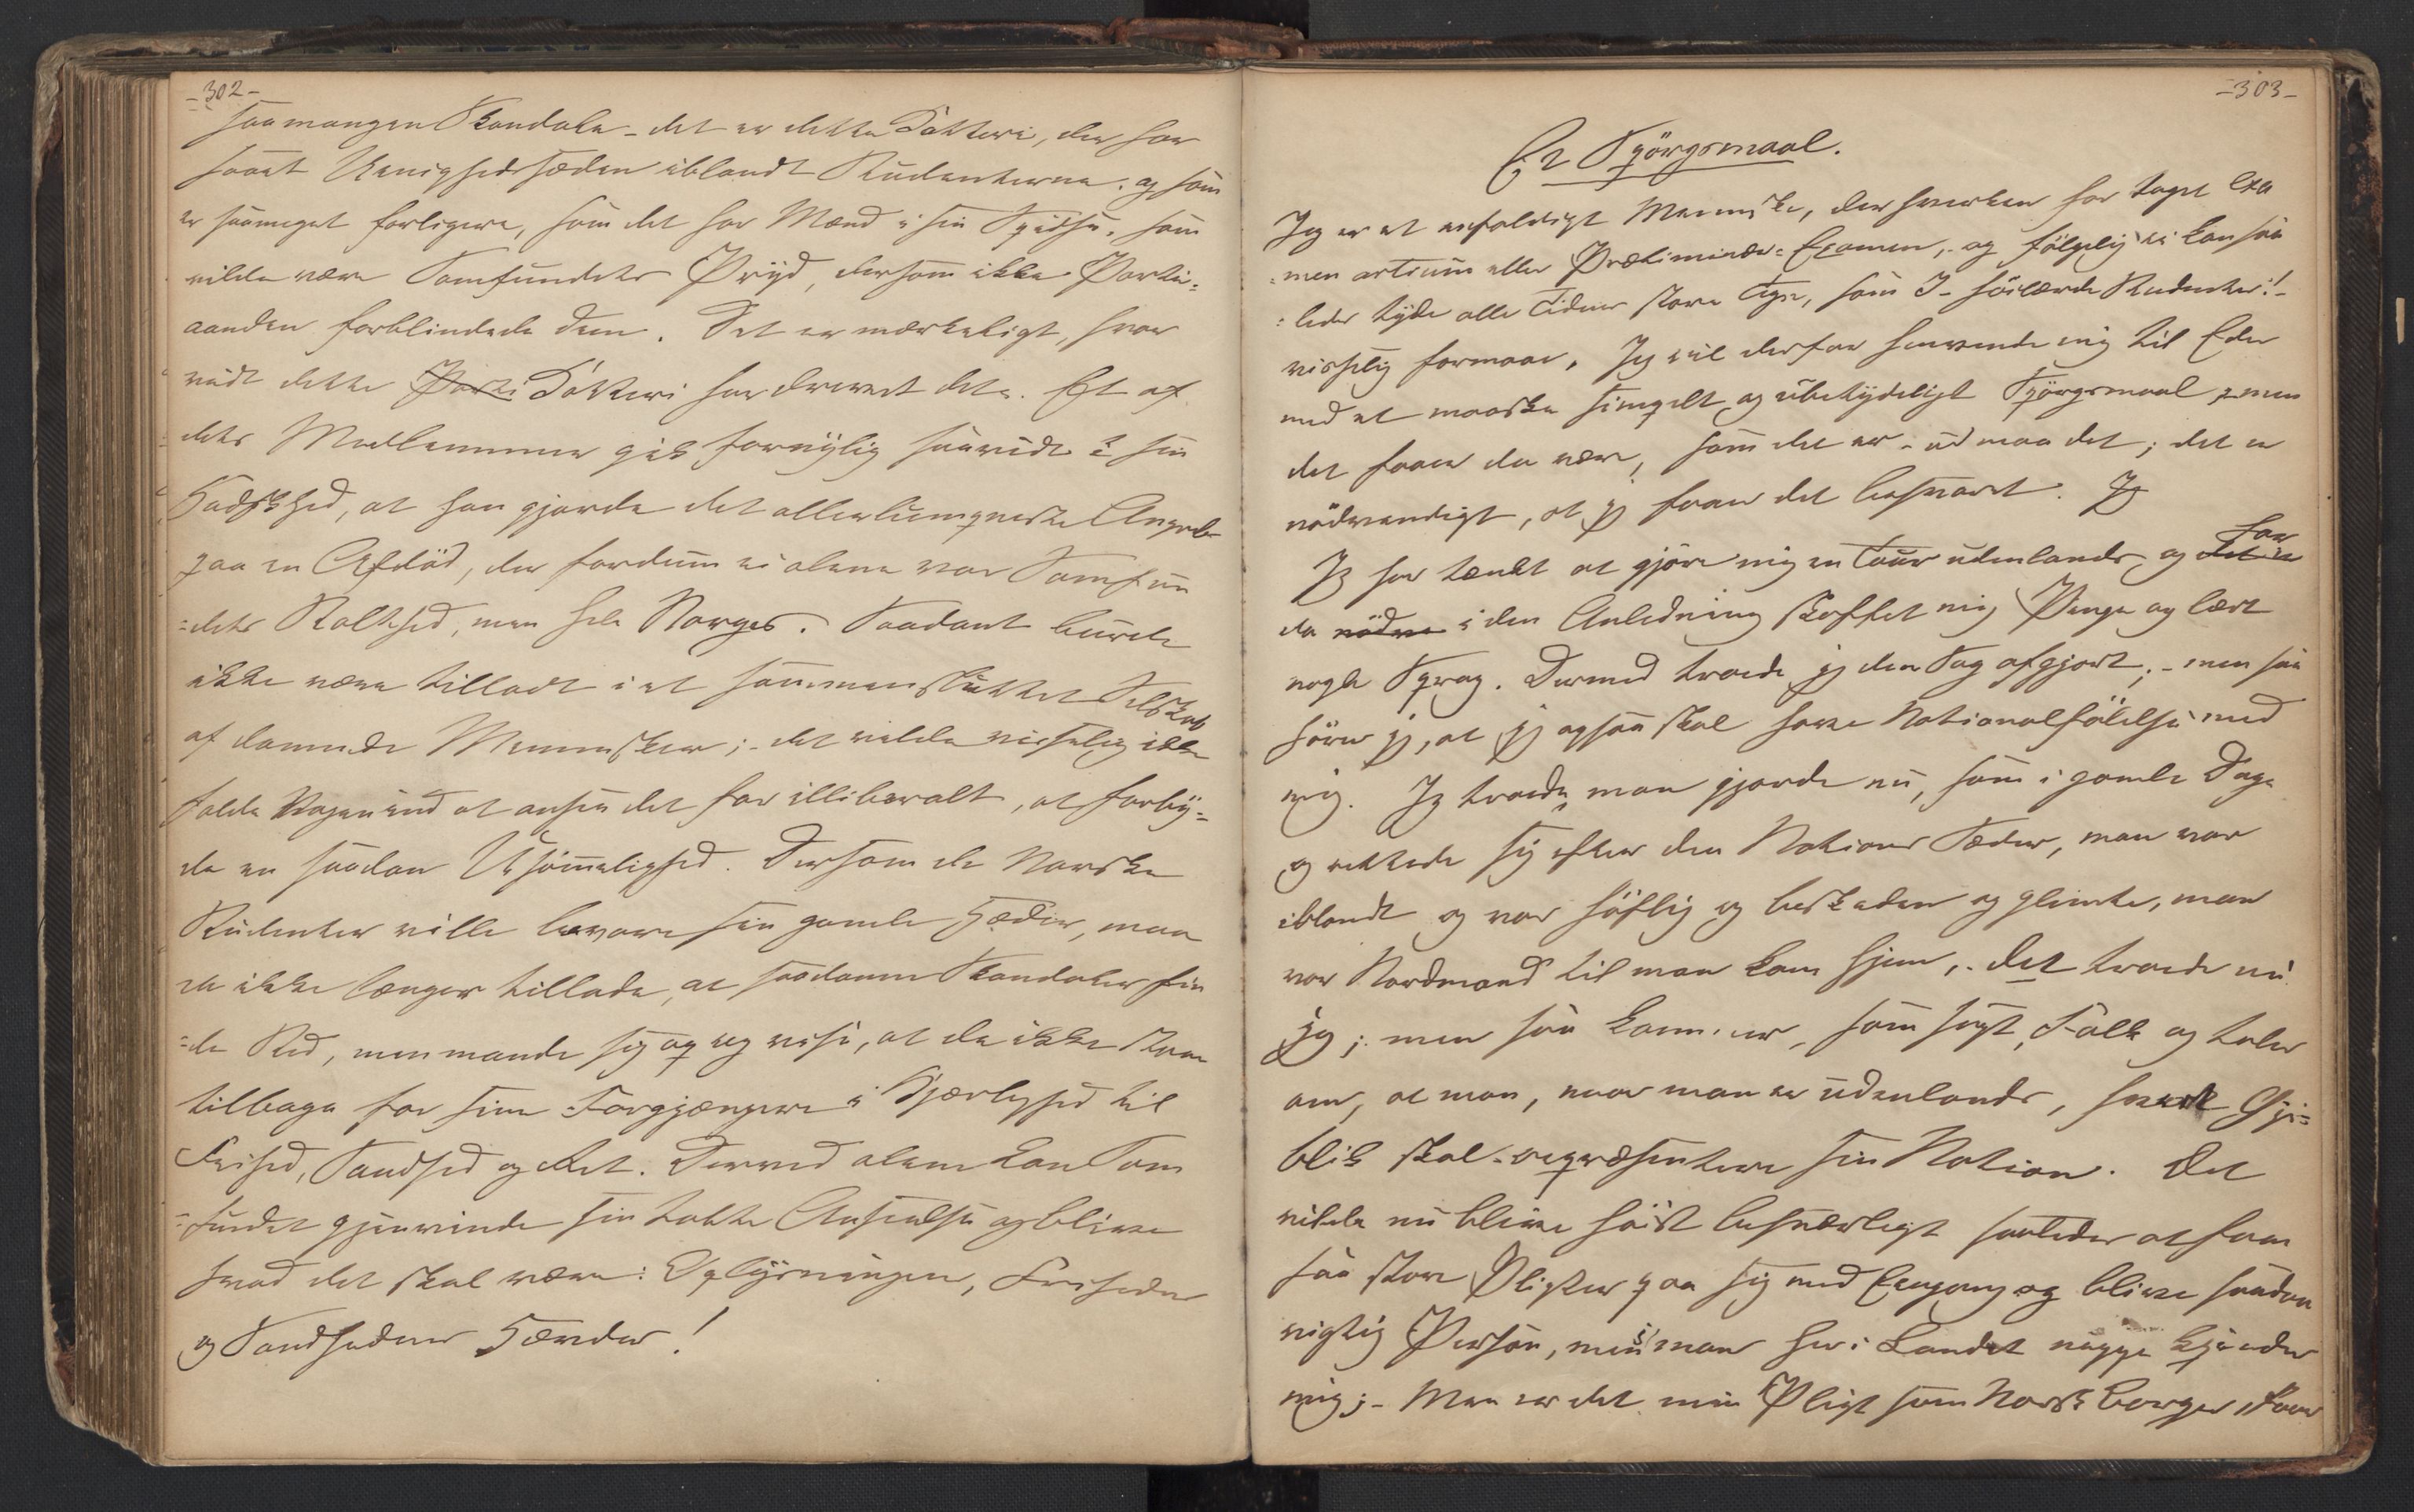 -302-
saamangen Skandale - det er dette Kotteri, der har
saaet Uenighedssæden iblandt Studenterne, og som
er saameget farligere, som det har Mænd i sin Spidse, som
vilde være Samfundets Pryd, dersom ikke Parti-
aanden forblindede dem. Det er mærkeligt, hvor
vidt dette Parti Kotteri har drevet det. Et af
dets Medlemmer gik fornylig saavidt i sin
Hadskhed, at han gjorde det allerlumpneste Angreb
paa en Afdød, der fordum ei alene var Samfun
=dets Stolthed, men hele Norges. Saadant burde
ikke være tilladt i et sammensluttet Selskab
af dannede Mennesker; - det vilde visselig ikke
falde Nogen ind at ansee det for illiberalt, at forby=
de en saadan Usømmelighed. Dersom de Norske
Studenter ville bevare sin gamle Hæder, maa
de ikke længer tillade, at saadanne Skandaler fin
=de Sted, men mande sig op og vise, at de ikke staae
tilbage for sine Forgjængere i Kjærlighed til
Frihed, Sandhed og Ret. Derved alene kan Sam
=fundet gjenvinde sin tabte Anseelse og blive
hvad det skal være: Oplysningens, Frihedens
og Sandhedens Hævder!
-303-
Et Spörgsmaal.
Jeg er et enfoldigt Menneske, der hverken har taget Exa
=men artium eller Præliminær-Examen, og fölgelig ei kan saa
=ledes tyde alle Tidens store Tegn, som I - höilærde Studenter! -
visselig formaae. Jeg vil derfor henvende mig til Eder
med et maaske simpelt og ubetydeligt Spörgsmaal, men
det faaer da være, som det er - ud maa det; det er
nödvendigt, at jeg faaer det besvaret. Jg
Jeg har tænkt at gjöre mig en Tour udenlands og det er har
da nödve i den Anledning skaffet mig Penge og lært
nogle Sprog. Dermed troede jeg den Sag afgjort; - men saa
hörer jeg, at jeg ogsaa skal have Nationalfölelse med
mig. Jeg troede, man gjorde nu, som i gamle Dage
og rettede sig efter den Nations Sæder, man var
iblandt og var höflig og beskeden og glemte, man
var Nordmand til man kom hjem, - det troede nu
jeg; men saa kommer, som sagt, Folk og taler
om, at man, naar man er udenlands, hvert Öje=
blik skal repræsentere sin Nation. Det
vilde nu blive höist besværligt saaledes at faae
saa store Pligter paa sig med Engang og blive saadan
vigtig Person, mens man her i Landet neppe kjender
mig; - Men er det min Pligt som Norsk Borger, saa